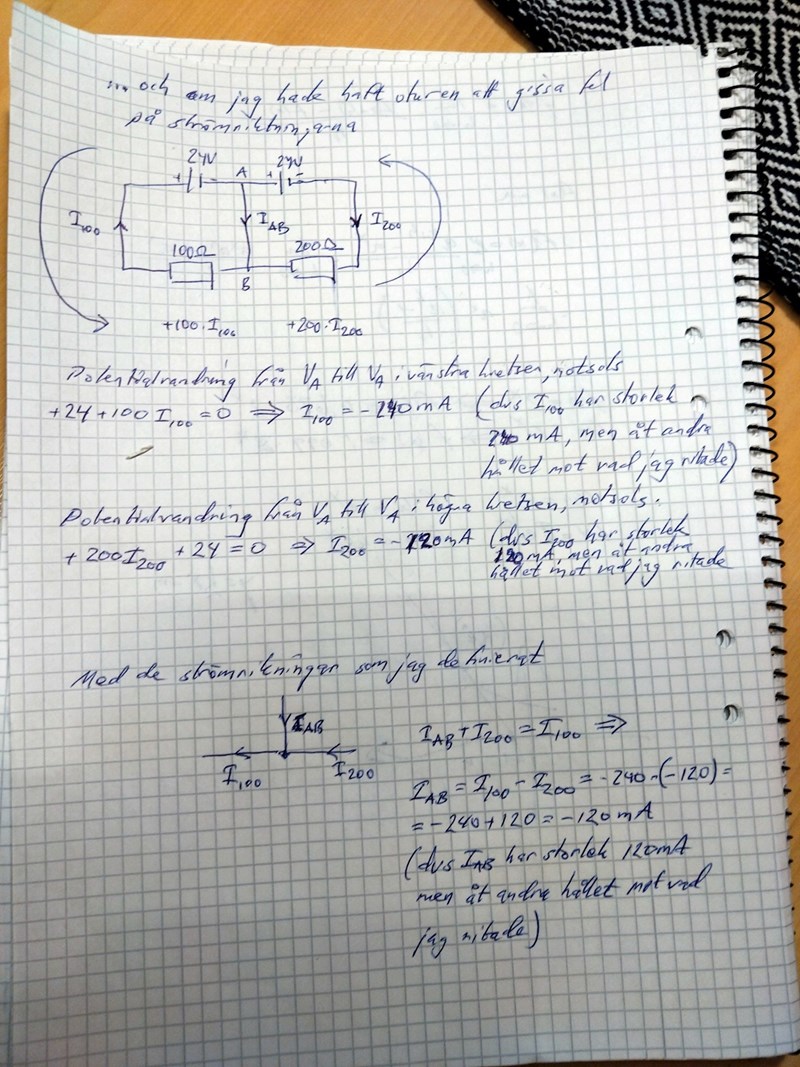 ... och om jag hade haft oturen att gissa fel
på strömriktningarna
24V A 24V
+ - + -
I100 IAB I200
100Ω 200Ω
B
+100·I100 +200·I200
Potentialvandring från VA till VA i vänstra kretsen, motsols
+24+100 I100 = 0 ⇒ I100 = -240 mA (dvs I100 har storlek
240 mA, men åt andra
hållet mot vad jag ritade)
Potentialvandring från VA till VA i högra kretsen, motsols.
+ 200I200 + 24 = 0 ⇒ I200 = -120mA (dvs I200 har storlek
120mA, men åt andra
hållet mot vad jag ritade
Med de strömrikningar som jag definierat
IAB
I100 I200
IAB + I200 = I100 ⇒
IAB = I100 - I200 = -240-(-120) =
= -240+120 = -120 mA
(dvs IAB har storlek 120mA
men åt andra hållet mot vad
jag ritade)